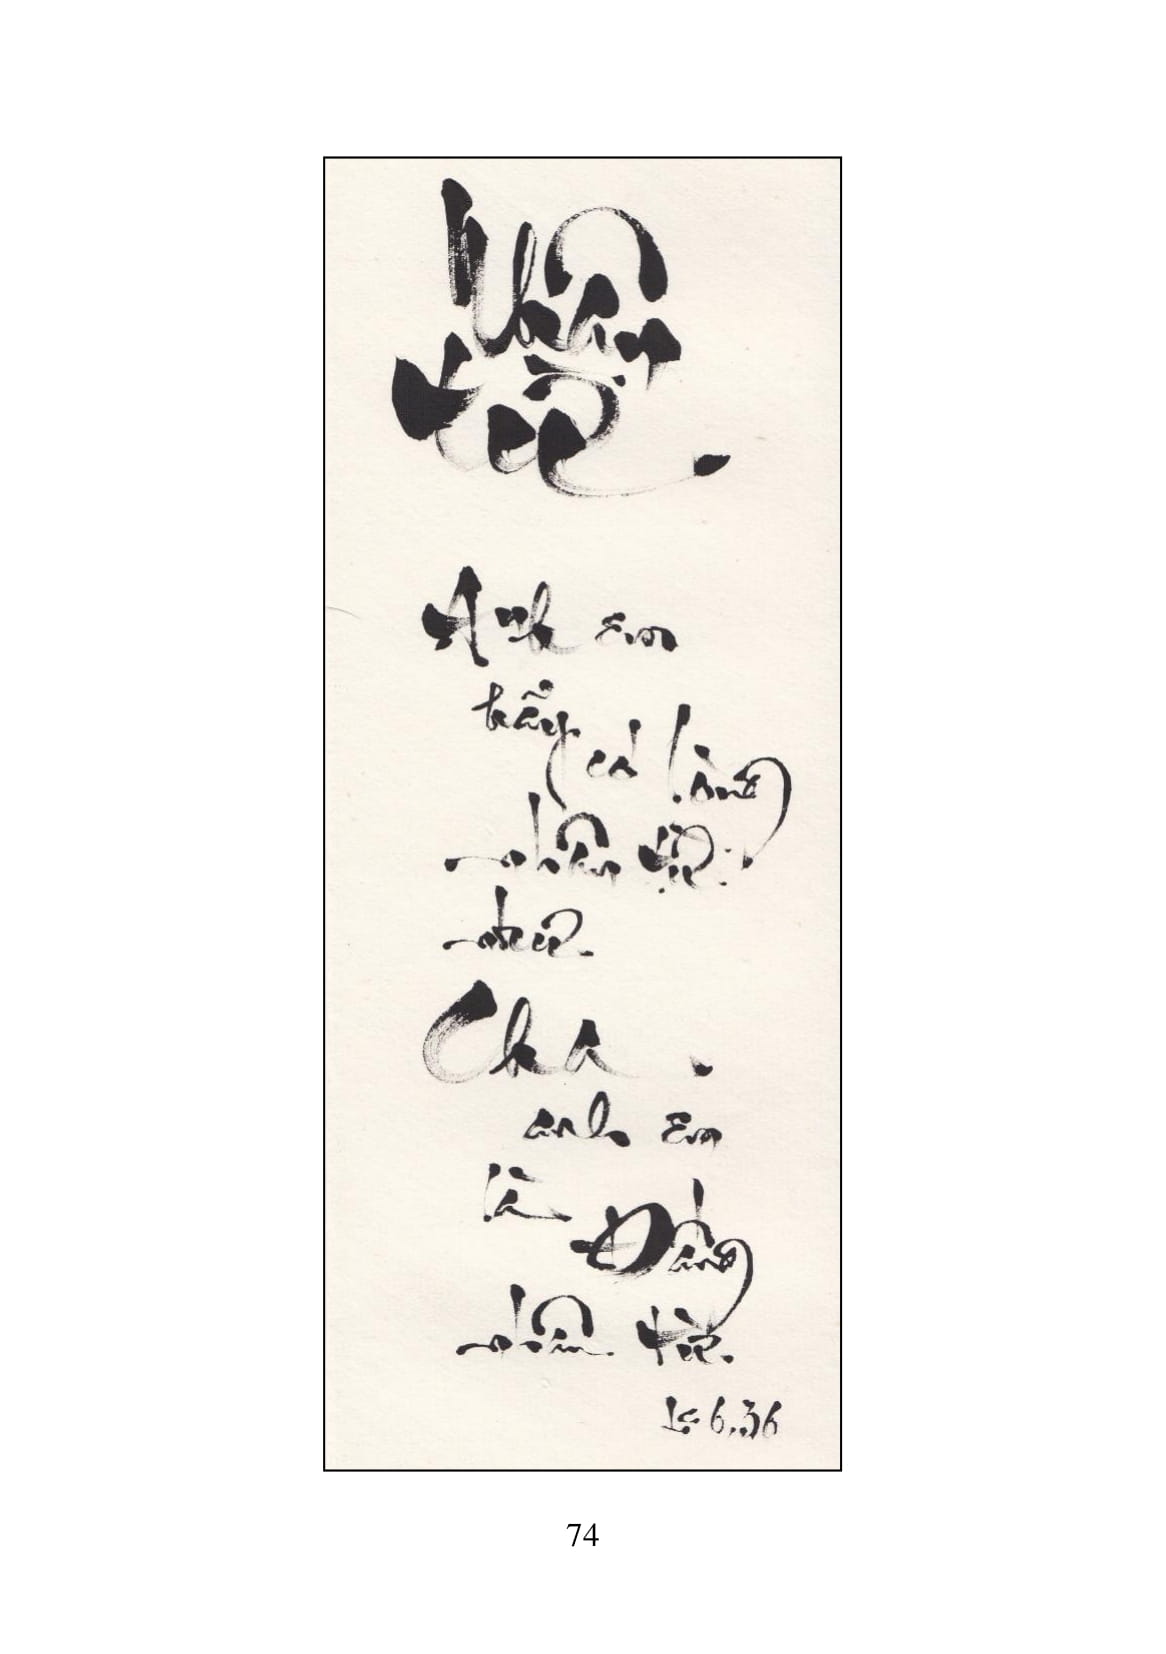 Nhân
từ
Anh em
hãy có lòng
nhân từ
như
Cha
anh em
là Đấng
nhân từ.
Lc 6,36
74